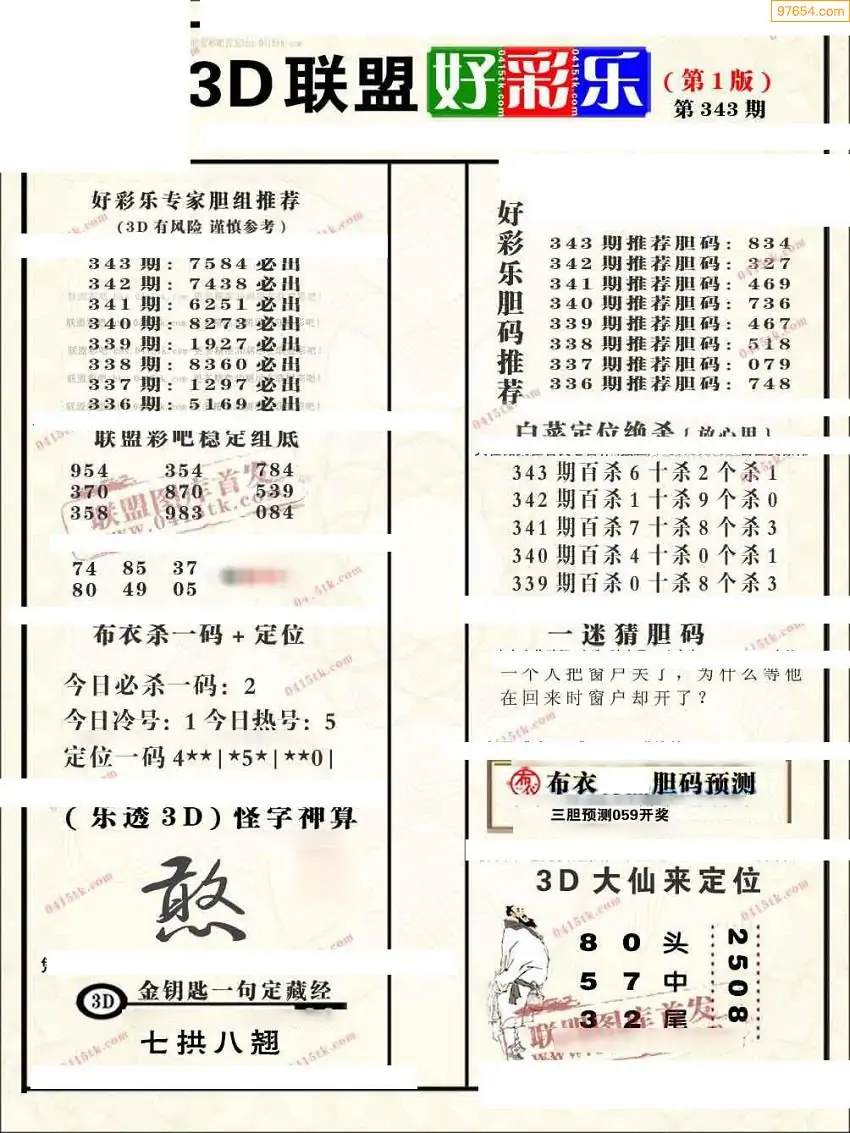 97654.com
3D联盟 好彩乐 (第1版)
第343期
好彩乐专家胆组推荐
(3D有风险 谨慎参考)
343期: 7584必出
342期: 7438必出
341期: 6251必出
340期: 8273必出
339期: 1927必出
338期: 8360必出
337期: 1297必出
336期: 5169必出
联盟彩吧稳定组底
954 354 784
370 870 539
358 983 084
74 85 37
80 49 05
布衣杀一码+定位
今日必杀一码: 2
今日冷号: 1 今日热号: 5
定位一码 4**|*5*|**0|
(乐透3D) 怪字神算
憨
3D 金钥匙一句定藏经
七拱八翘
好彩乐胆码推荐
343期推荐胆码: 834
342期推荐胆码: 327
341期推荐胆码: 469
340期推荐胆码: 736
339期推荐胆码: 467
338期推荐胆码: 518
337期推荐胆码: 079
336期推荐胆码: 748
白菜定位绝杀(放心用)
343期百杀6十杀2个杀1
342期百杀1十杀9个杀0
341期百杀7十杀8个杀3
340期百杀4十杀0个杀1
339期百杀0十杀8个杀3
一迷猜胆码
一个人把窗户关了, 为什么等他
在回来时窗户却开了?
布衣 胆码预测
三胆预测059开奖
3D大仙来定位
8 0 头
5 7 中
3 2 尾
2508
联盟图库首发
www.0415tk.com
0415tk.com